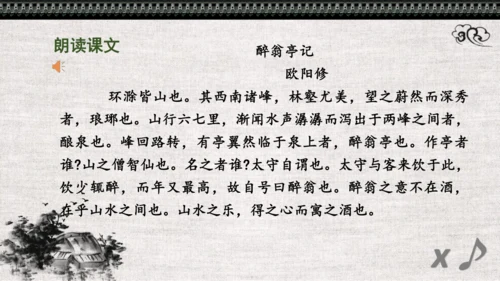 朗读课文
醉翁亭记
欧阳修
环滁皆山也。其西南诸峰，林壑尤美，望之蔚然而深秀
者，琅琊也。山行六七里，渐闻水声潺潺而泻出于两峰之间者，
酿泉也。峰回路转，有亭翼然临于泉上者，醉翁亭也。作亭者
谁?山之僧智仙也。名之者谁?太守自谓也。太守与客来饮于此，
饮少辄醉，而年又最高，故自号曰醉翁也。醉翁之意不在酒，
在乎山水之间也。山水之乐，得之心而寓之酒也。
x